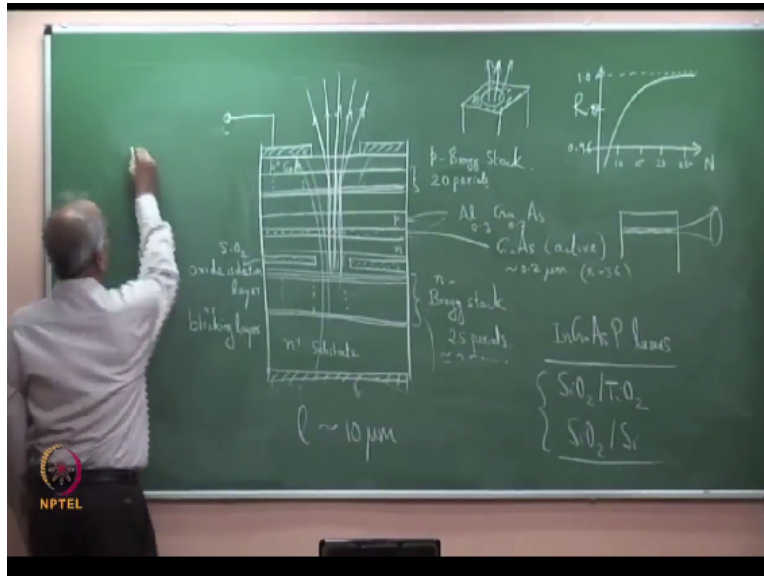 p⁺ GaAs
SiO₂
oxide isolation
layer
blocking layer
n⁺ Substrate
l ~ 10 μm
p
n
p-Bragg Stack
20 periods
Al₀.₃ Ga₀.₇ As
GaAs (active)
~0.2 μm (n=3.6)
n-
Bragg stack
25 periods
1.0
R
0.96
10
15
N
InGaAsP lasers
SiO₂/TiO₂
SiO₂/Si
NPTEL